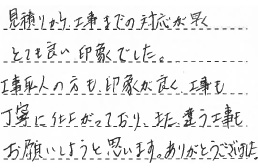 見積りから、工事までの対応が早く
とても良い印象でした。
工事人の方も、印象が良く、工事も
丁寧に仕上がっており、また、違う工事も
お願いしようと思います。ありがとうございました